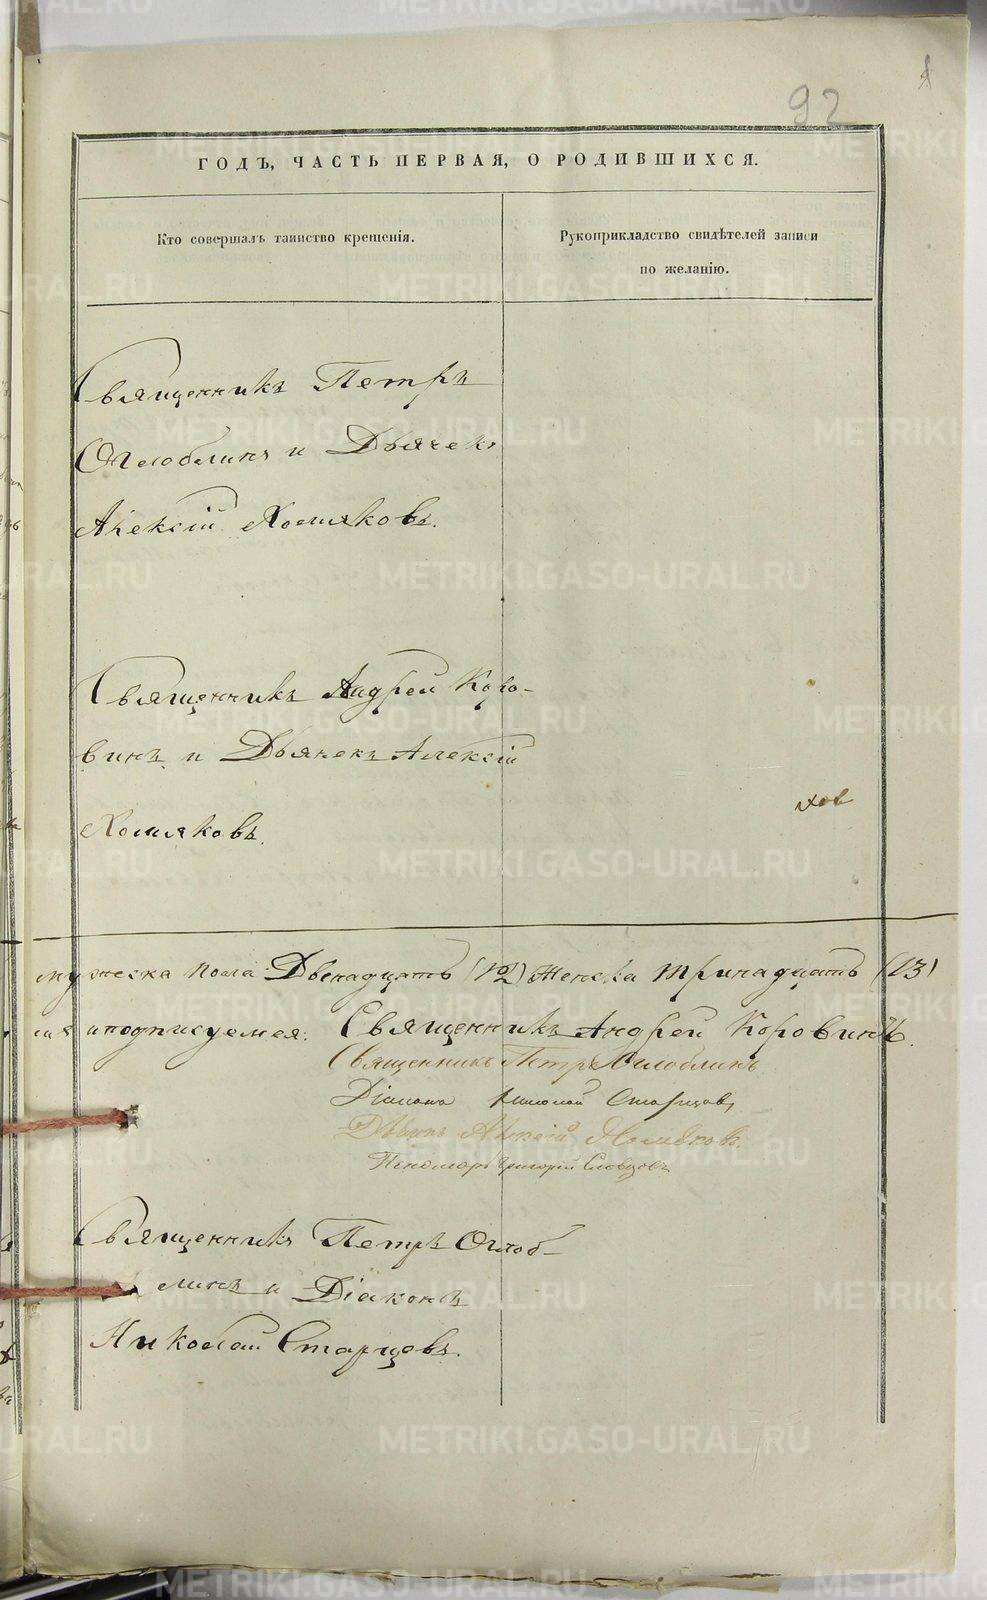 92
ГОДЪ, ЧАСТЬ ПЕРВАЯ, О РОДИВШИХСЯ.
Кто совершалъ таинство крещенія.
Рукоприкладство свидѣтелей записи
по желанію.
Священникъ Петръ
Оглоблинъ и Дьячекъ
Алексій Хомяковъ.
Священникъ Андрей Коро-
винъ и Дьячекъ Алексій
Хомяковъ.
мужеска пола Двенадцать (12) Женска тринадцать (13)
и подписуемся: Священникъ Андрей Коровинъ.
Священникъ Петръ Оглоблинъ
Діаконъ Николай Старцовъ
Дьячекъ Алексій Хомяковъ.
Пономарь Григорій Словцовъ
Священникъ Петръ Оглоб-
линъ и Діаконъ
Николай Старцовъ.
METRIKI.GASO-URAL.RU